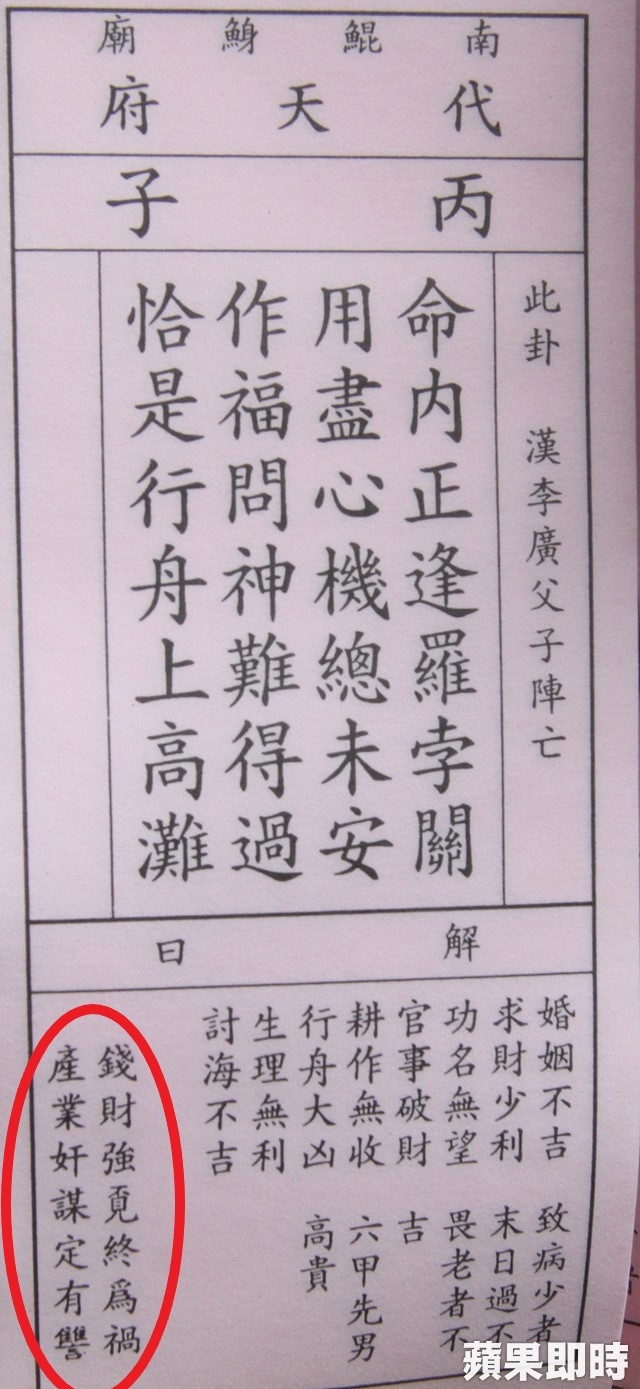 南鯤鯓廟
代天府
丙子
此卦　漢李廣父子陣亡
命内正逢羅孛關
用盡心機總未安
作福問神難得過
恰是行舟上高灘
解曰
婚姻不吉　致病少者
求財少利　末日過不
功名無望　畏老者不
官事破財　吉
耕作無收　六甲先男
行舟大凶　高貴
生理無利
討海不吉
錢財強覓終爲禍
產業奸謀定有讐
蘋果即時